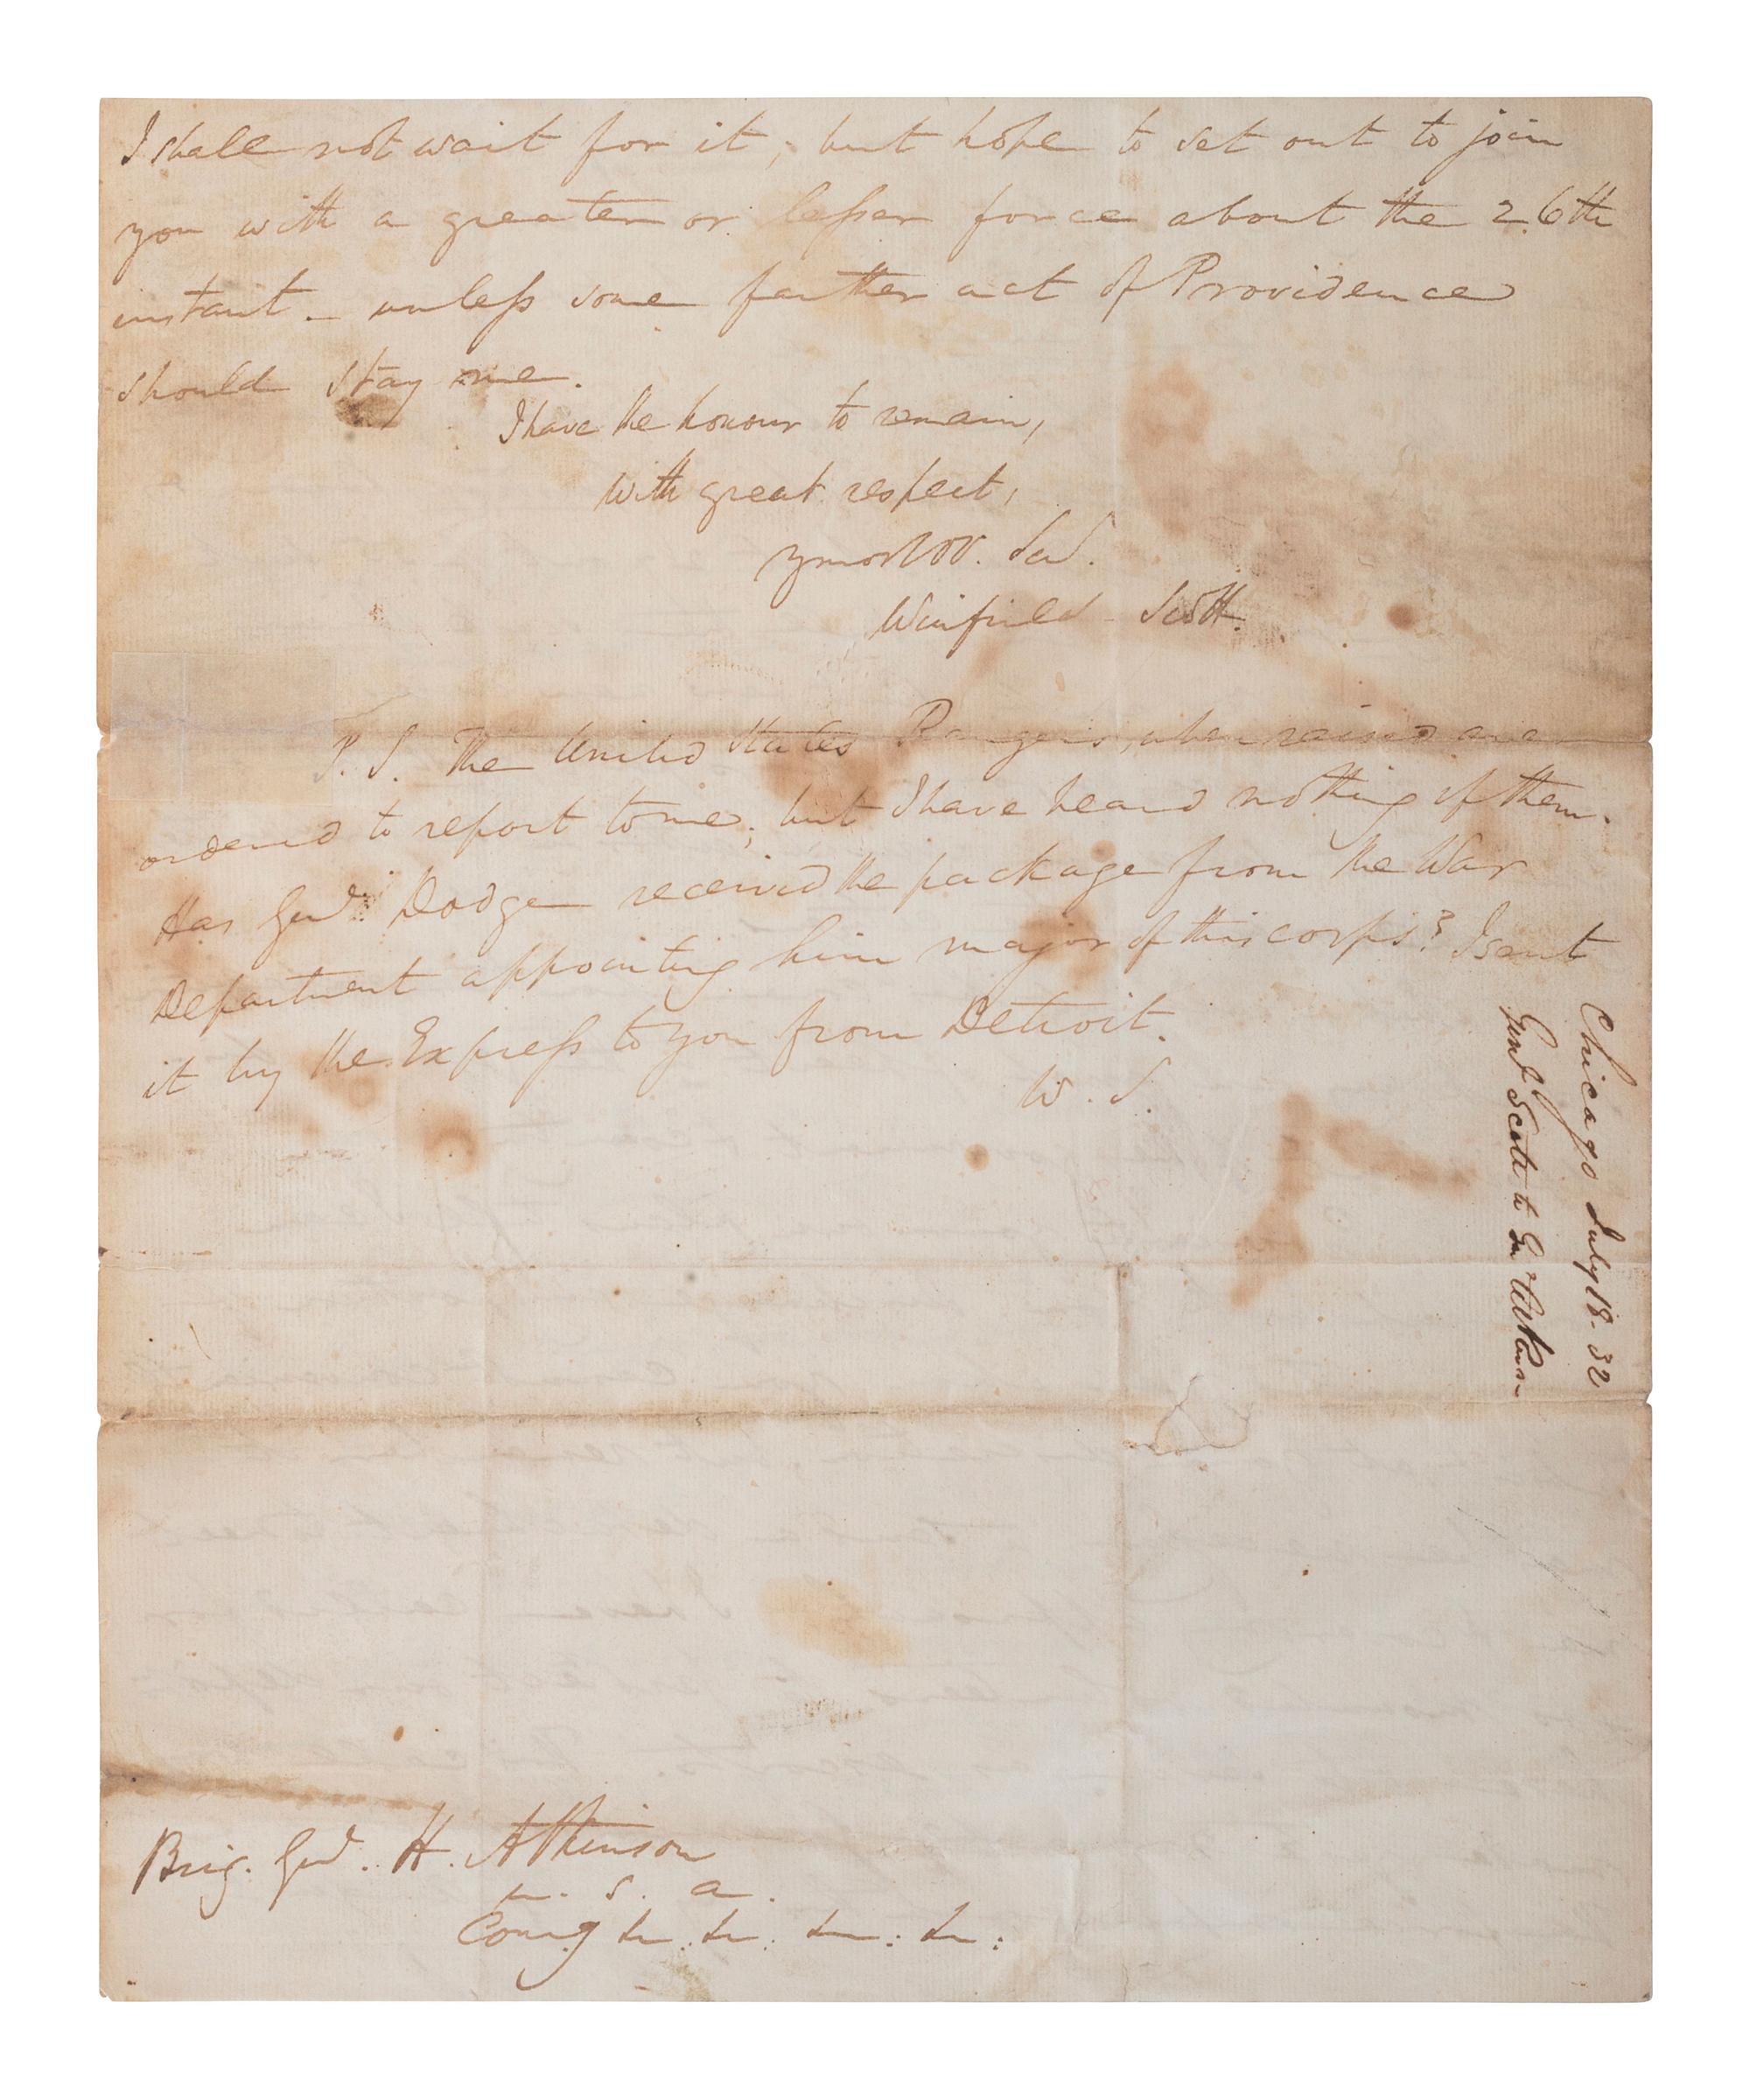 I shall not wait for it; but hope to set out to join
you with a greater or lesser force about the 26th
instant — unless some farther act of Providence
should stay me.
I have the honour to remain,
with great respect,
Winfield Scott.
P. S. The United States Rangers, when raised are
ordered to report to me; but I have heard nothing of them.
Has Genl. Dodge received the package from the War
Department appointing him major of this corps? I sent
it by the Express to you from Detroit.
W. S.
Chicago July 18 - 32
Genl Scott to Gn Atkinson
Brig. Genl. H. Atkinson
U. S. A.
Comg &. &. &. &.